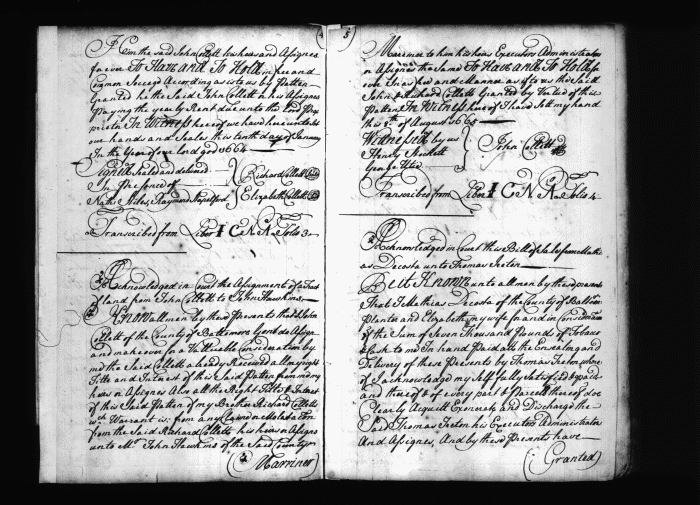 4
from the said John Collett his heires and Assignes
for ever To Have and To Hold in free and
Common Soccage According as it is to us by Patten
Granted he the Said John Collett or his Assignes
Paying the yearly Rent due unto the Lord Pro
prietr In Witness hereof we have hereunto sett
our hands and Seales this tenth day of January
In the Year of our lord god 1664
Signed Sealed and delivered
In Presence of
Richard Collett
Nathl Stiles, Raymond Stapelford
Elizabeth Collett
Transcribed from Liber I C N N Folio 3
Acknowledged in Court the Assignment of a Tract
of land from John Collett to John Hawkins
Know all men by these Presents that I John
Collett of the County of Baltimore Gent do Assign
and make over for a Valluable Consideration by
me the Said Collett already Received all my right
Title and Interest of this Said Patten from me my
heires or Assignes Also all the Right Title & Interest
of this Said Patten of my Brother Richard Colletts
wch I Warrant is from any
from the Said Richard Collett his heires or Assignes
unto Mr John Hawkins of the Said County
(Marriner)
5
Marriner to him his heires Executors Administrators
or Assignes the Same To Have and To Hold for
ever In as full and Manner as it is to us the Said
John & Richard Collett Granted by Vertue of this
Patten In Witness hereof I have Sett my hand
this 8th of August 1664
Witnessed by us
John Collett
Henry Stockett
George Utie
Transcribed from Liber I C N N Folio 4
Acknowledged in Court this Bill of Sale from Mathi
as Decosta unto Thomas
Be itt Knowne unto all men by these presents
That I Mathias Decosta of the County of Baltimore
Planter and Elizabeth my wife for and in Consideration
of the Sum of Seven Thousand Pounds of Tobacco
& Cask to me In hand Paid att the Ensealing and
Delivery of these Presents by Thomas
of I acknowledge my Self fully Satisfied & paid
and thereof & of every part & Parcell thereof doe
Clearly Acquitt Exonerate and Discharge the
Said Thomas his Executors Administrators
And Assignes, And by these Presents have
(Granted)